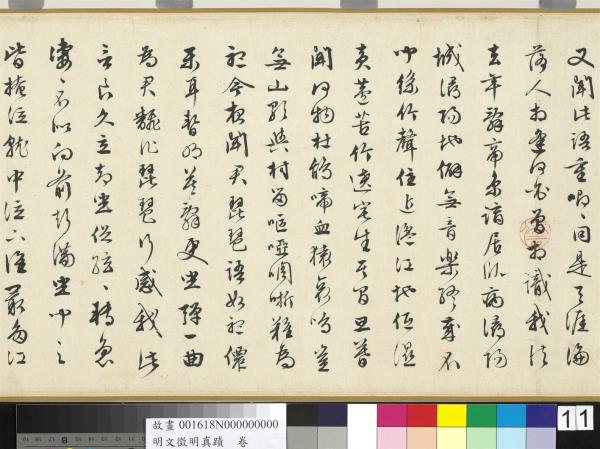 又聞此語重唧〻同是天涯淪
落人相逢何必曾相識我從
去年辭帝京謫居臥病潯陽
城潯陽地僻無音樂終歲不
聞絲竹聲住近湓江地低濕
黃蘆苦竹遶宅生其間旦暮
聞何物杜鵑啼血猿哀鳴豈
無山歌與村笛嘔啞嘲哳難為
聽今夜聞君琵琶語如聽僊
樂耳暫明莫辭更坐彈一曲
為君翻作琵琶行感我此
言良久立却坐促絃〻轉急
淒〻不似向前聲滿坐聞之
皆掩泣就中泣下誰最多江
故畫 001618N000000000
明文徵明真蹟 卷
11